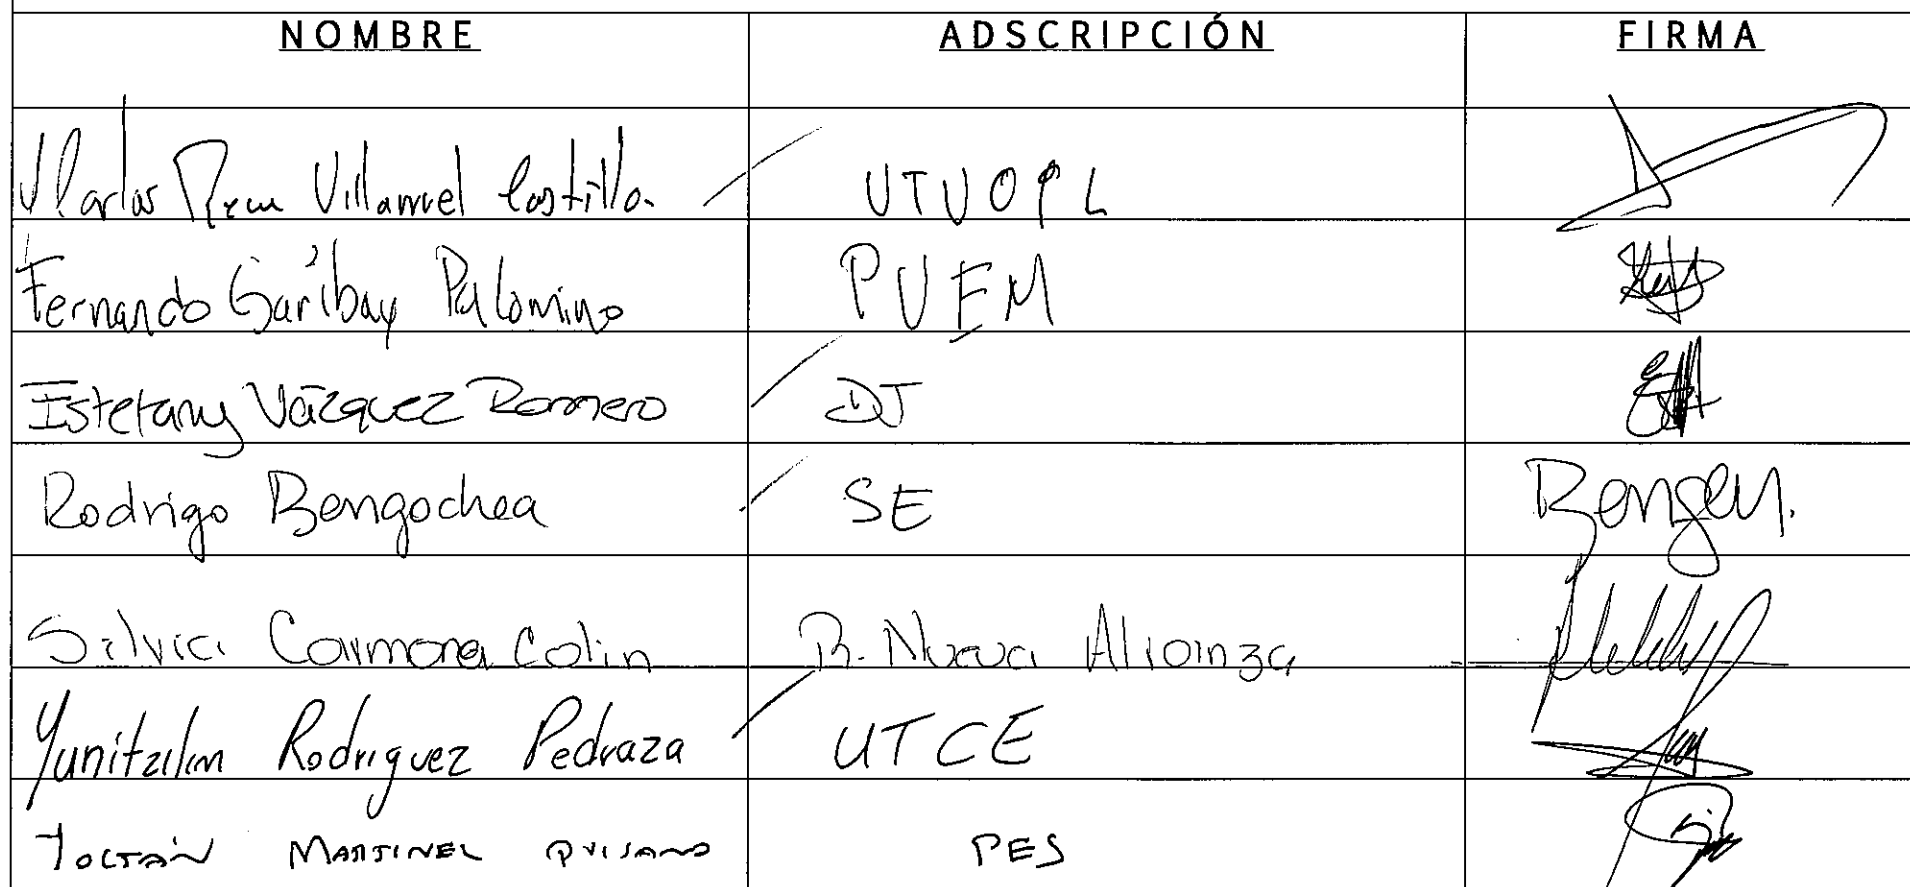 NOMBRE ADSCRIPCIÓN FIRMA
Villarruel Castillo UTVOPL
Fernando Garibay Palomino PVEM
Estefany Vázquez Romero DJ
Rodrigo Bengochea SE
Silvia Carmona Colin R. Nueva Alianza
Yunitzilim Rodriguez Pedraza UTCE
PES